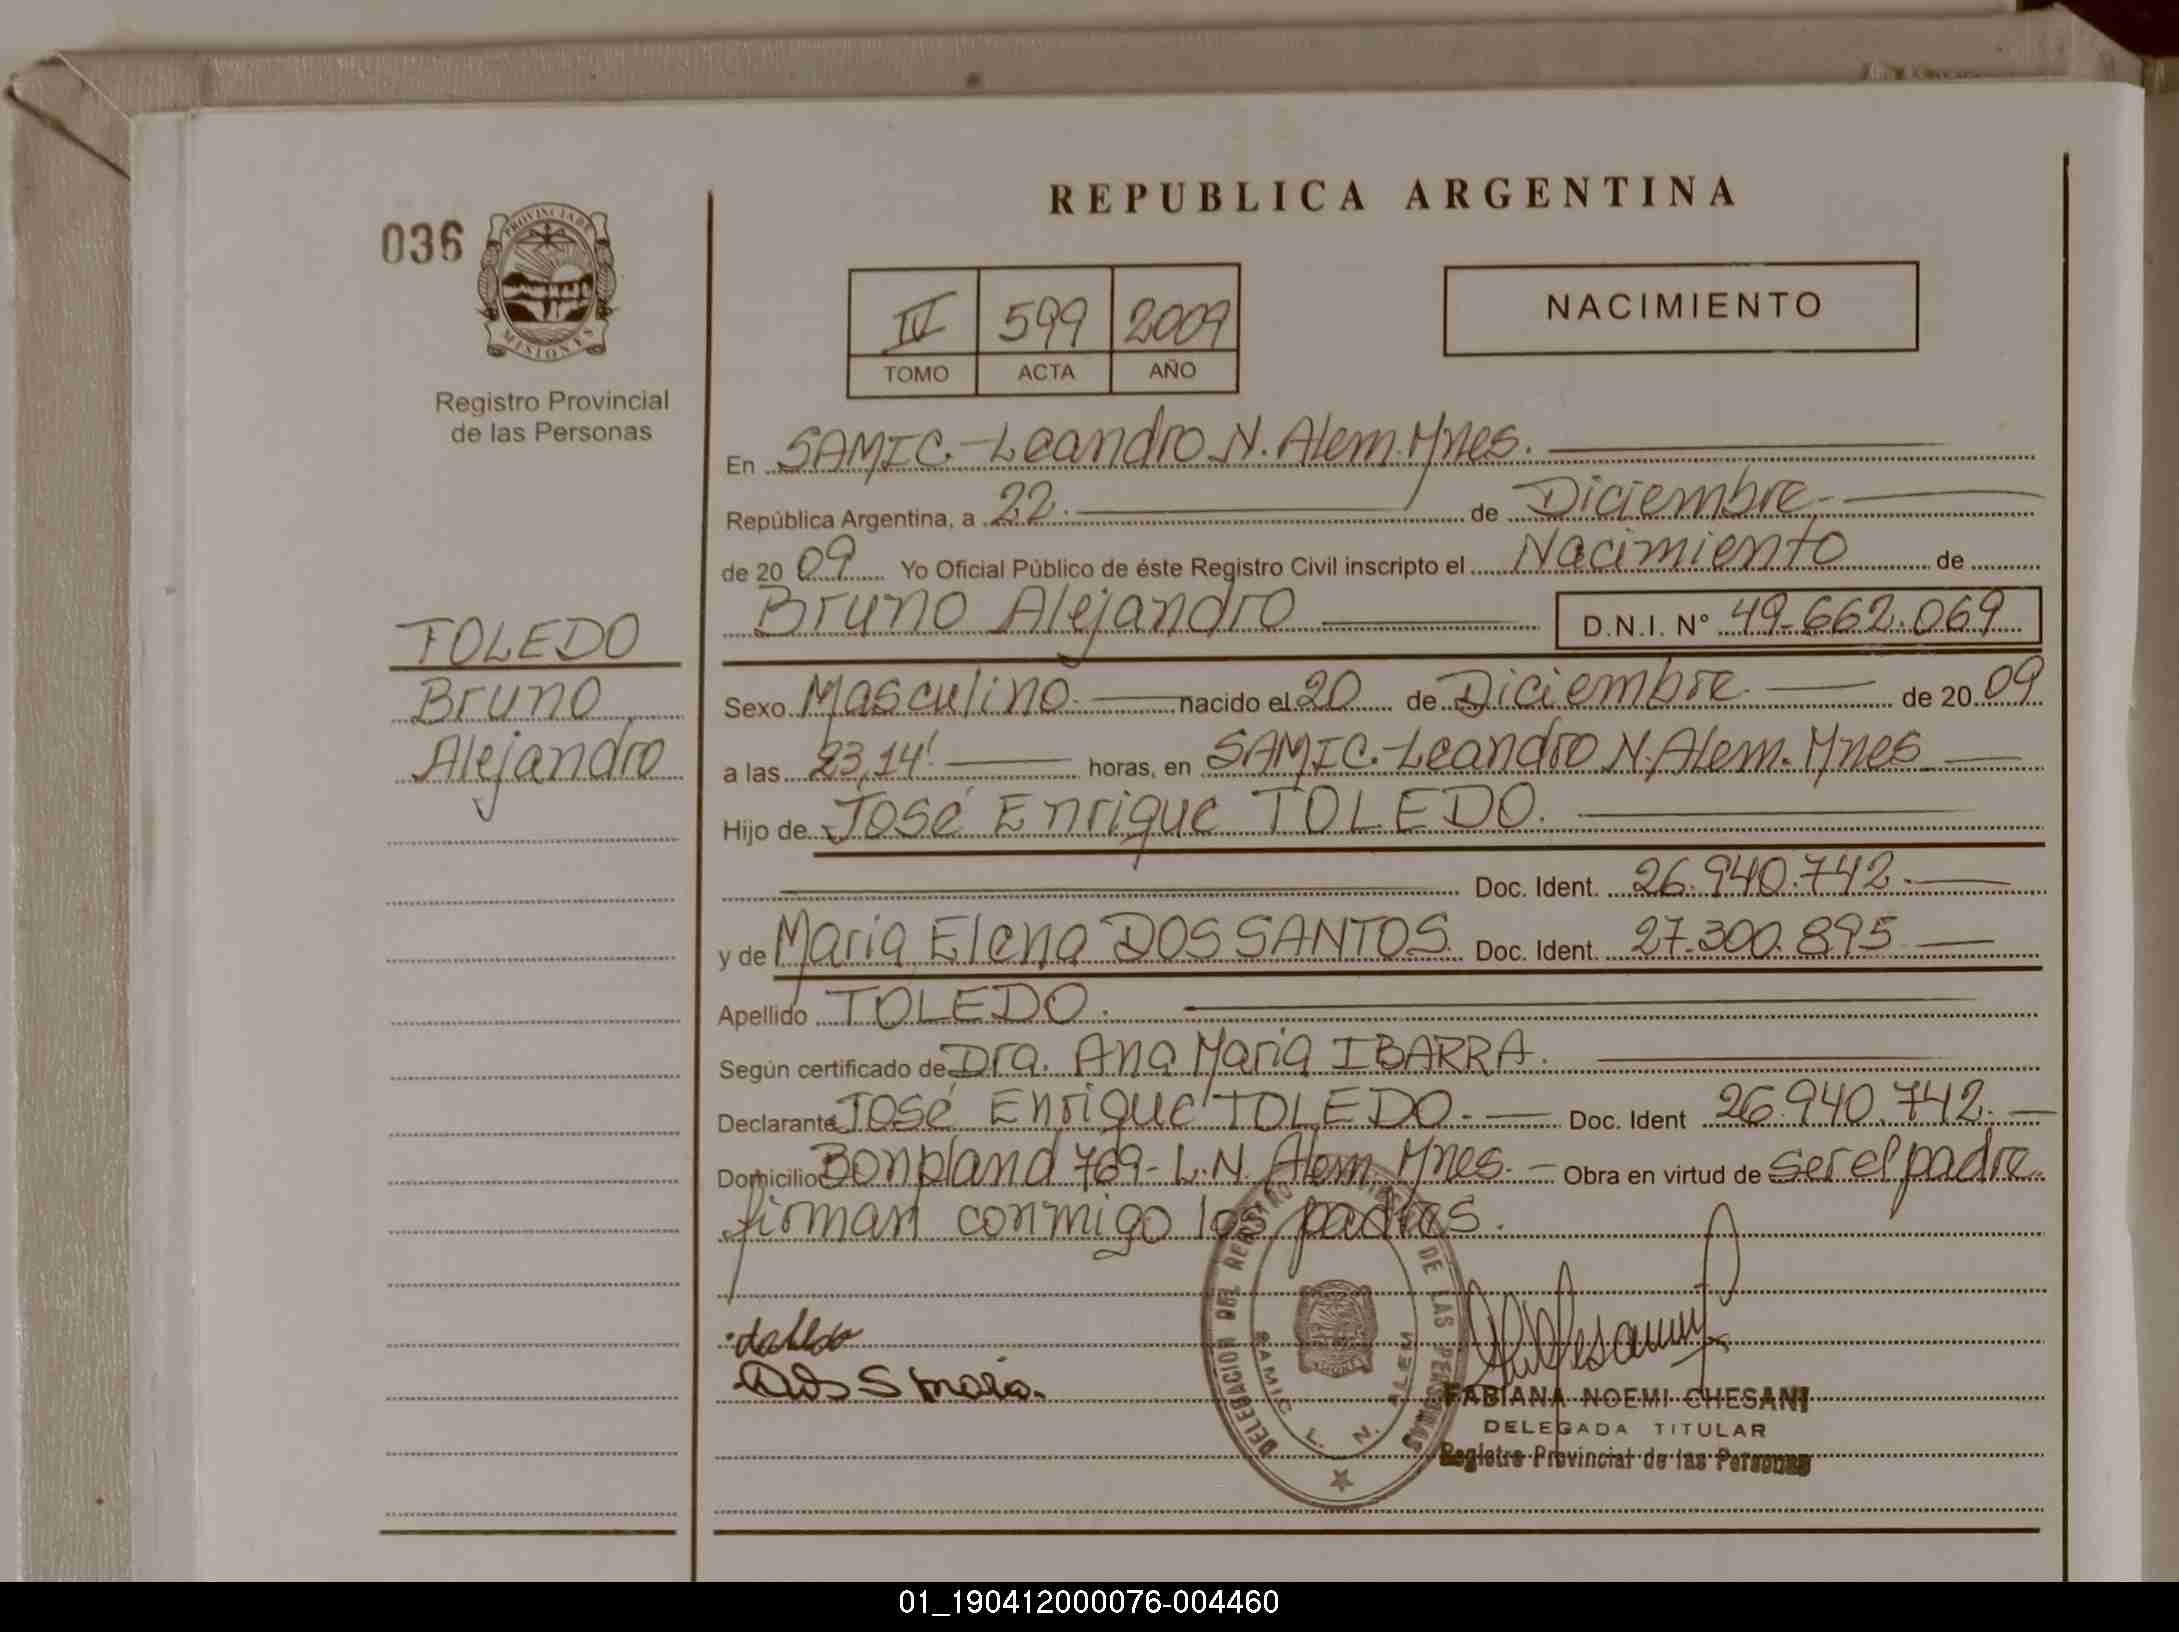 REPUBLICA ARGENTINA
036
PROVINCIA DE
MISIONES
Registro Provincial
de las Personas
IV 599 2009
TOMO ACTA AÑO
NACIMIENTO
En SAMIC.-Leandro N. Alem. Mnes.
República Argentina, a 22. de Diciembre.
de 20 09 Yo Oficial Público de éste Registro Civil inscripto el Nacimiento de
Bruno Alejandro D.N.I. N° 49.662.069
TOLEDO
Bruno
Alejandro
Sexo Masculino. nacido el 20 de Diciembre. de 20 09
a las 23,14' horas, en SAMIC.-Leandro N. Alem. Mnes
Hijo de José Enrique TOLEDO.
Doc. Ident. 26.940.742.
y de Maria Elena DOS SANTOS. Doc. Ident. 27.300.895
Apellido TOLEDO.
Según certificado de Dra. Ana Maria IBARRA.
Declarante José Enrique TOLEDO. Doc. Ident 26.940.742.
Domicilio Bonpland 769- L.N. Alem. Mnes. Obra en virtud de ser el padre.
firman conmigo los padres.
DELEGACION DEL REGISTRO DE LAS PERSONAS
SAMIC L. N. ALEM
FABIANA NOEMI CHESANI
DELEGADA TITULAR
Registro Provincial de las Personas
01_190412000076-004460